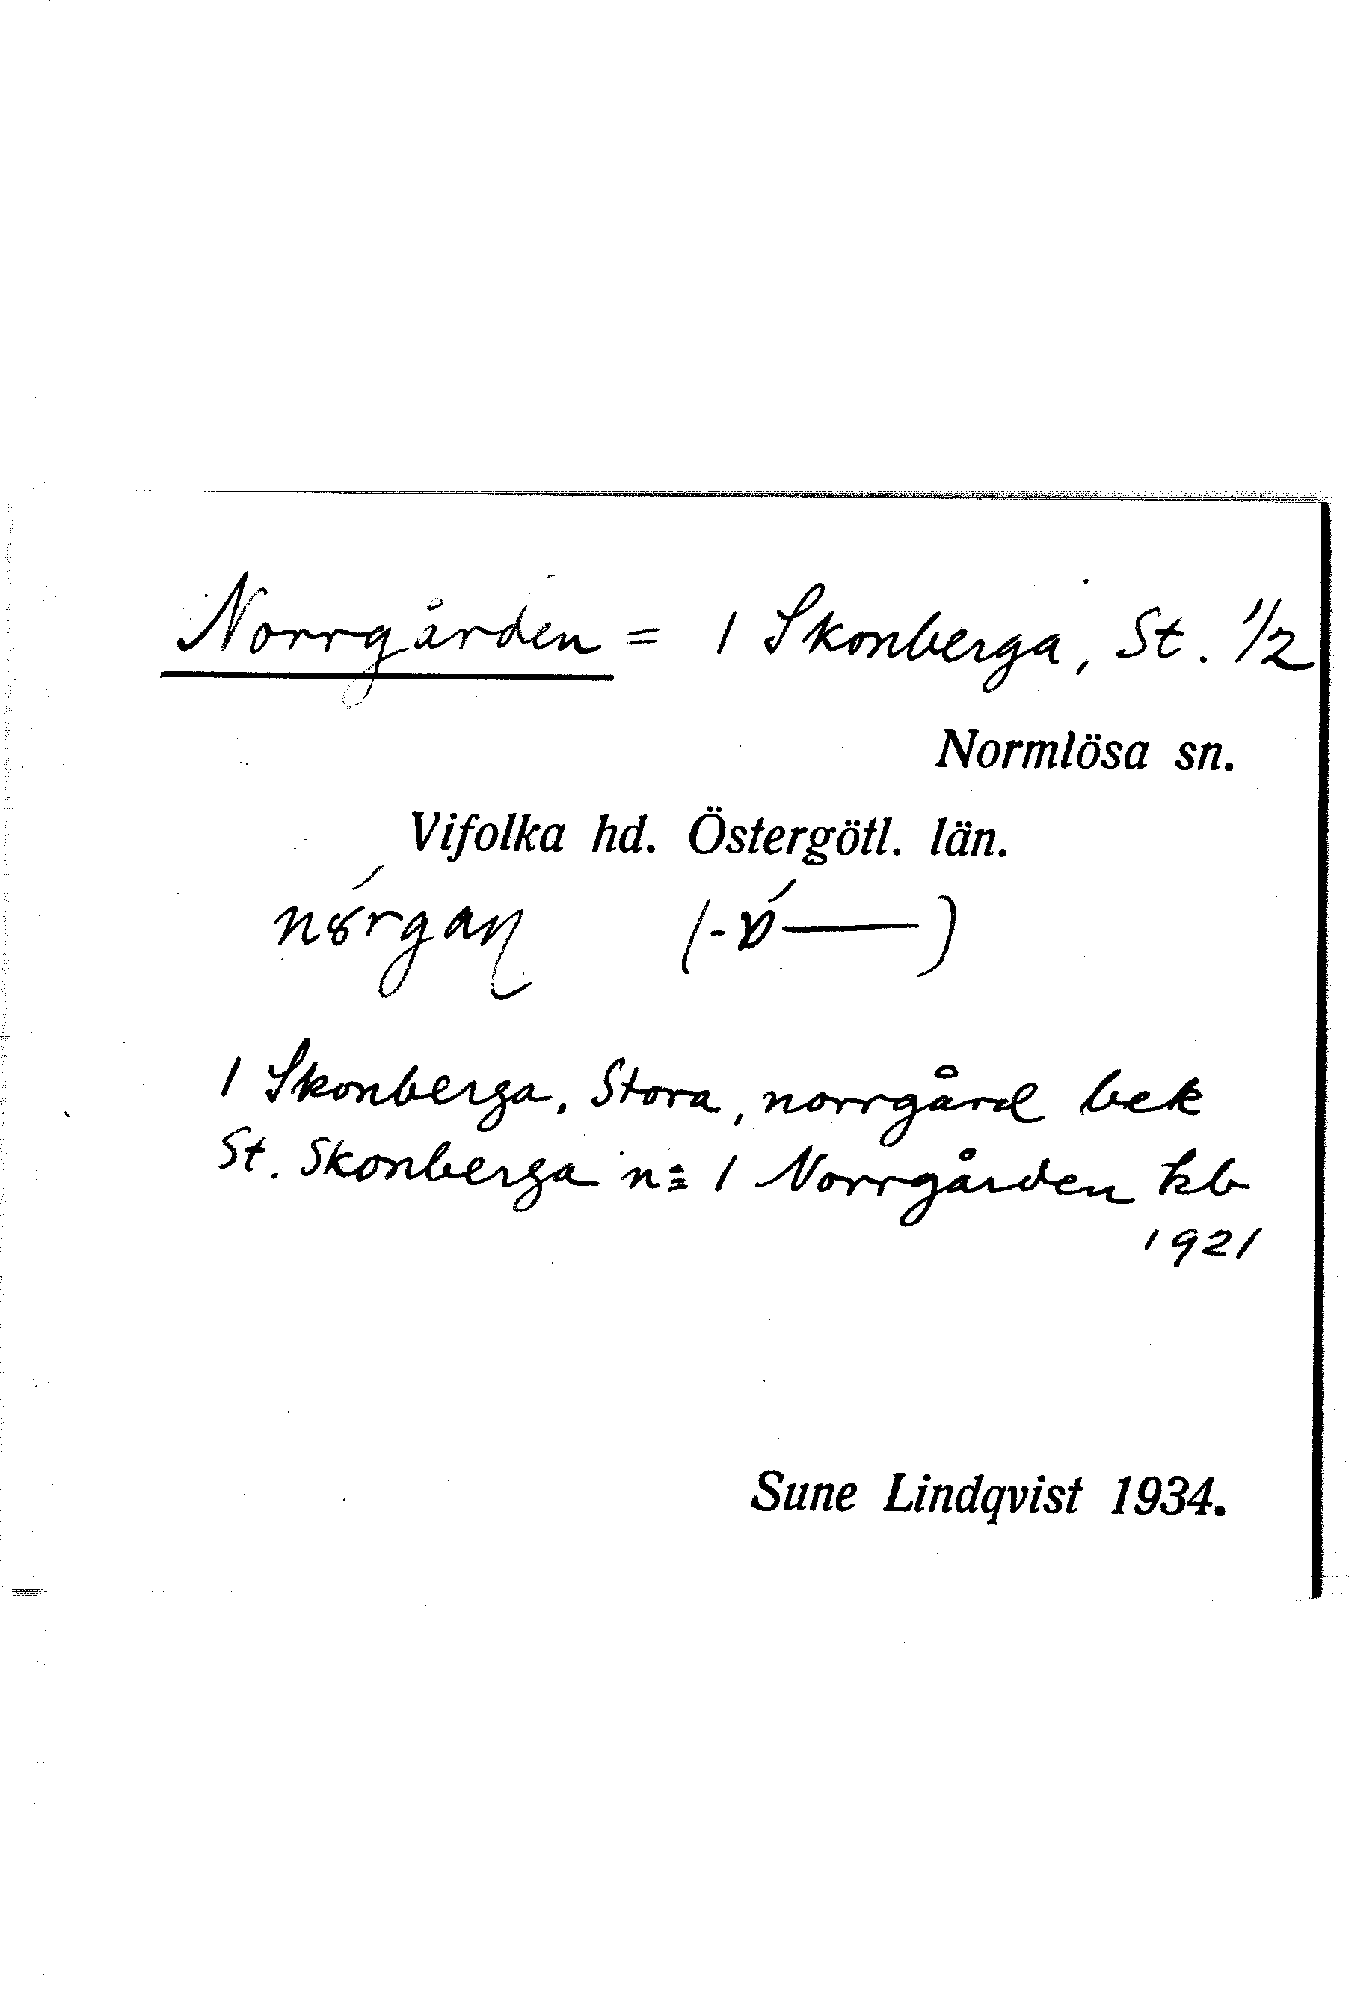 Norrgården = 1 Skonberga, St. 1/2
Normlösa sn.
Vifolka hd. Östergötl. län.
1 Skonberga, Stora, norrgård bek
St. Skonberga n:= 1 Norrgården kb
1921
Sune Lindqvist 1934.